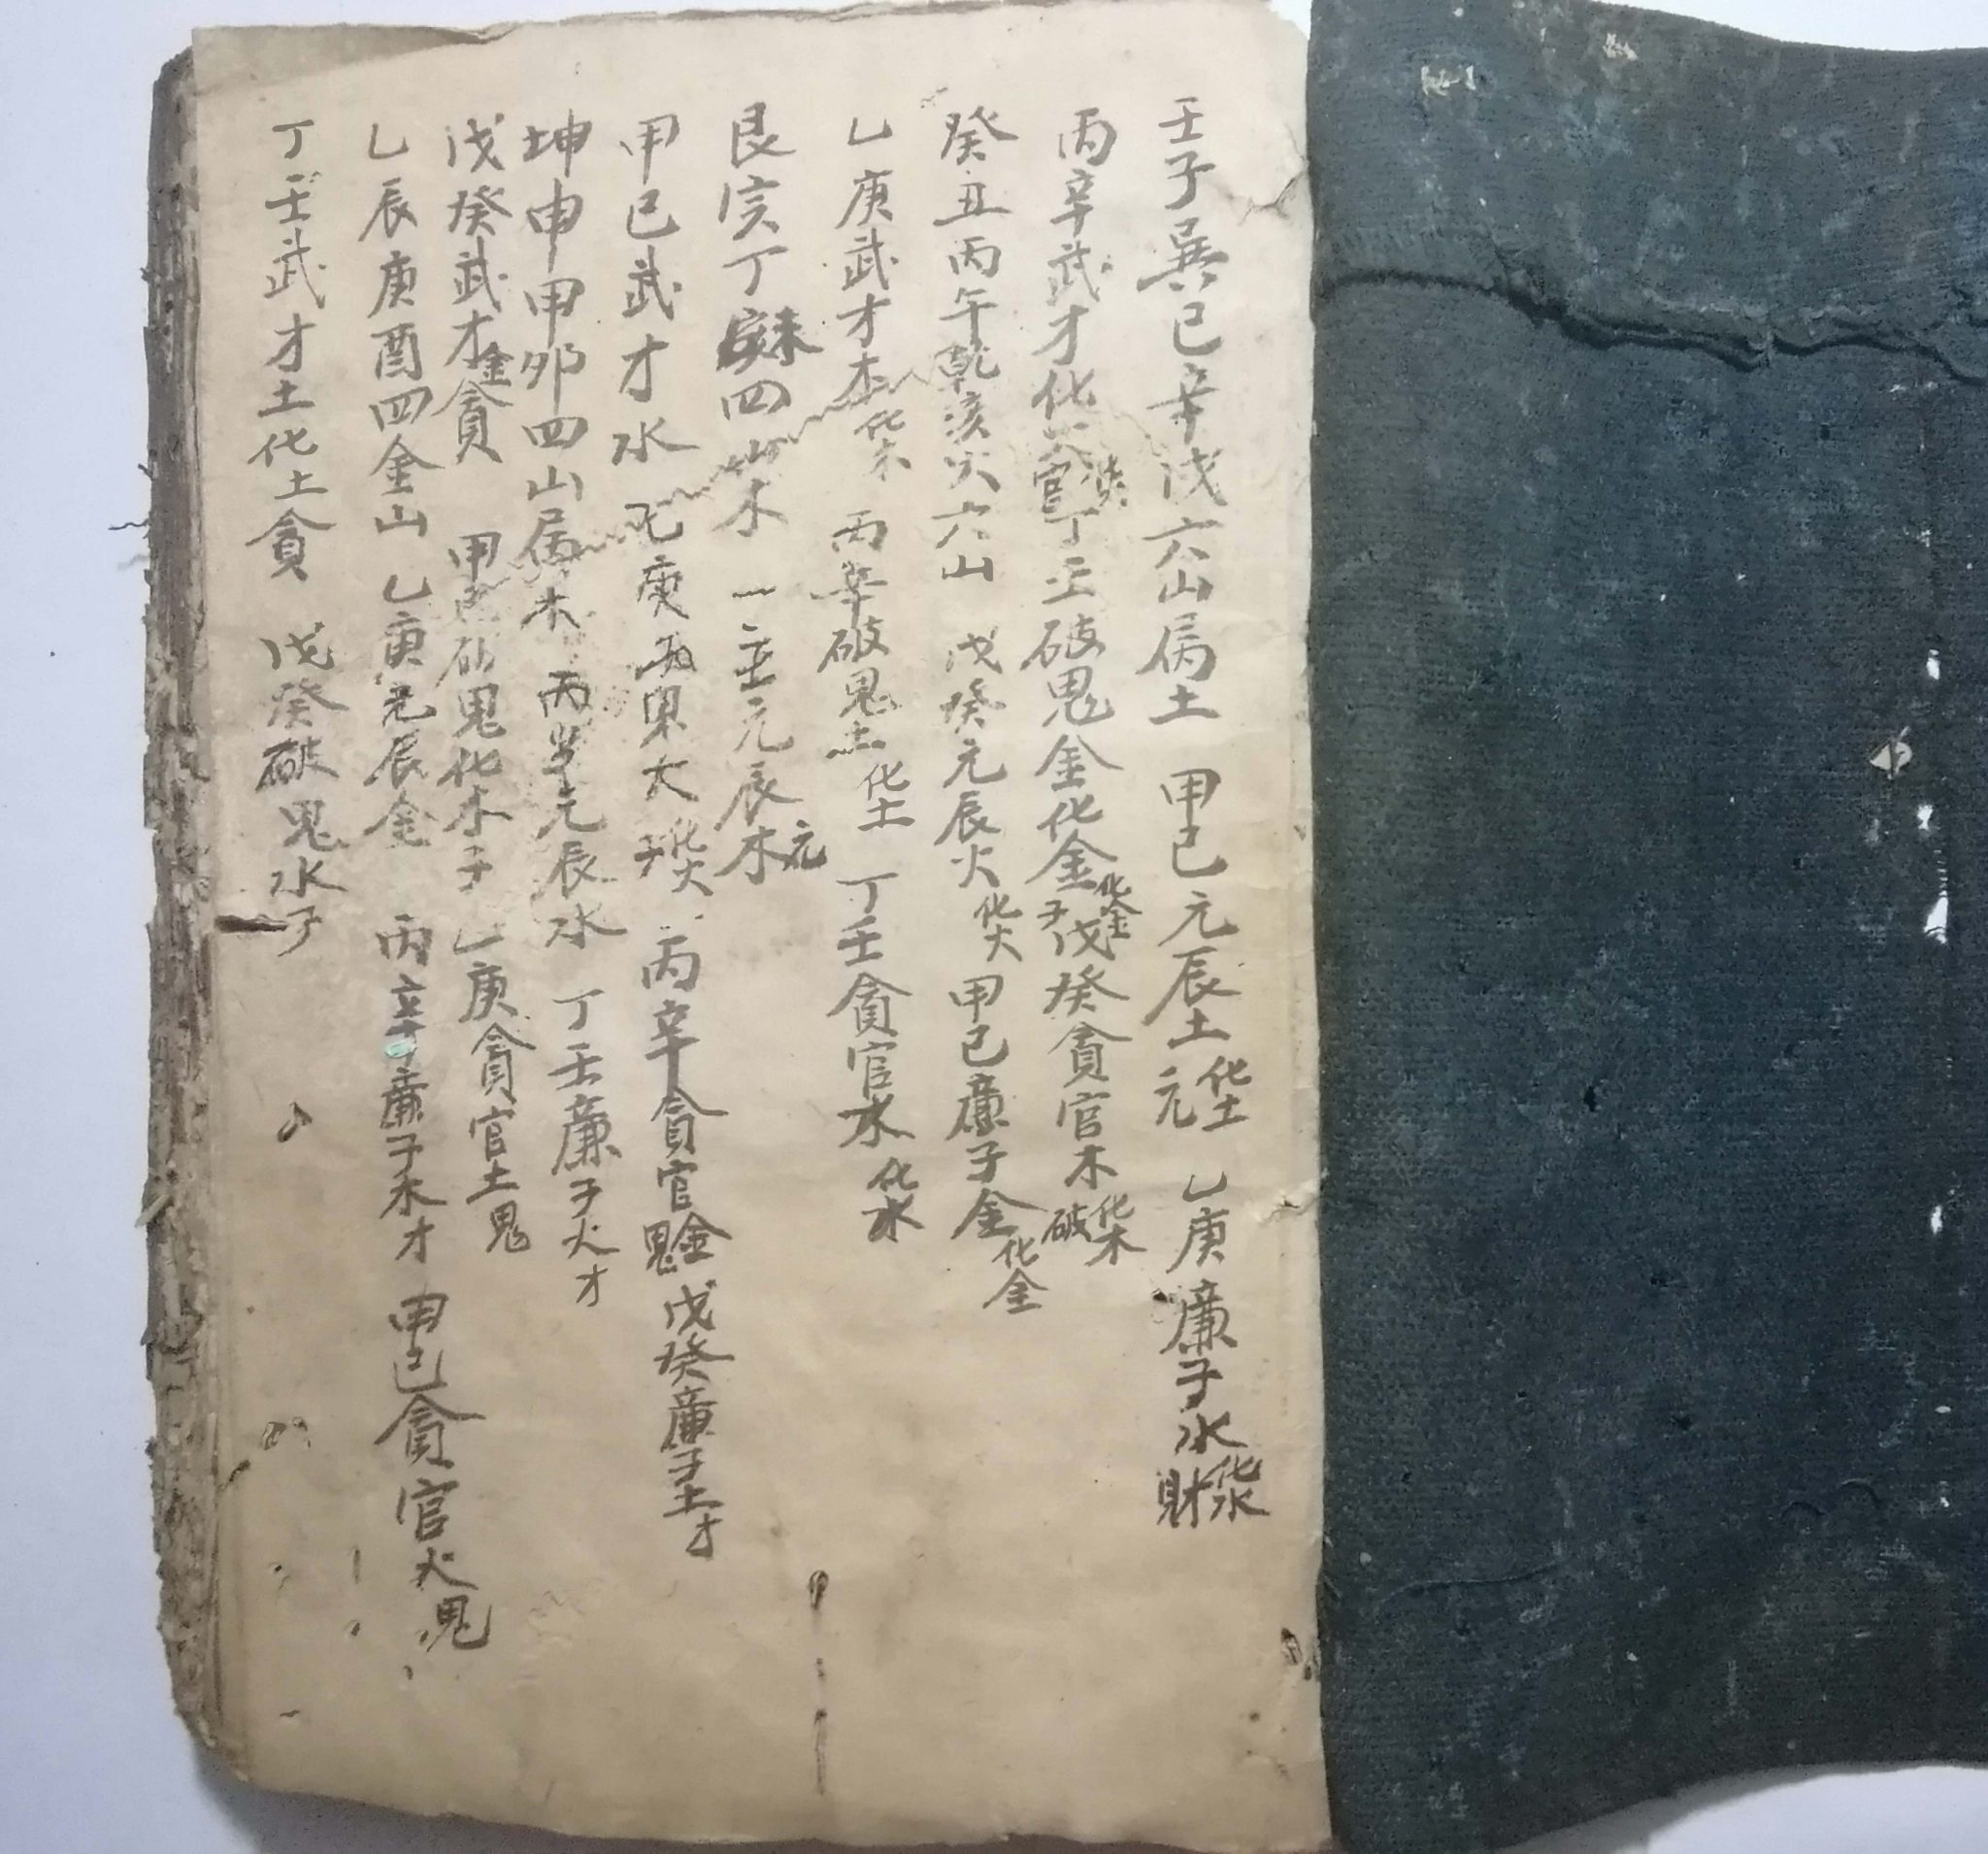 壬子巽巳辛戌六山属土 甲己元辰土化土元 乙庚廉子水化水財
丙辛武才化火官 丁壬破鬼金化金化金子 戊癸貪官木化木破
癸丑丙午乾亥火六山 戊癸元辰火化火 甲己廉子金化金
乙庚武才木化木 丙辛破鬼土化土 丁壬貪官水化水
艮寅丁未四山木 一主元辰木元
甲己武才水 乙庚鬼火化火子 丙辛貪官金鬼 戊癸廉子土才
坤申甲卯四山属木 丙辛元辰水 丁壬廉子火才
戊癸武才金貪 甲己破鬼化木子 乙庚貪官土鬼
乙辰庚酉四金山 乙庚元辰金 丙辛廉子木才 甲己貪官火鬼
丁壬武才土化土貪 戊癸破鬼水子